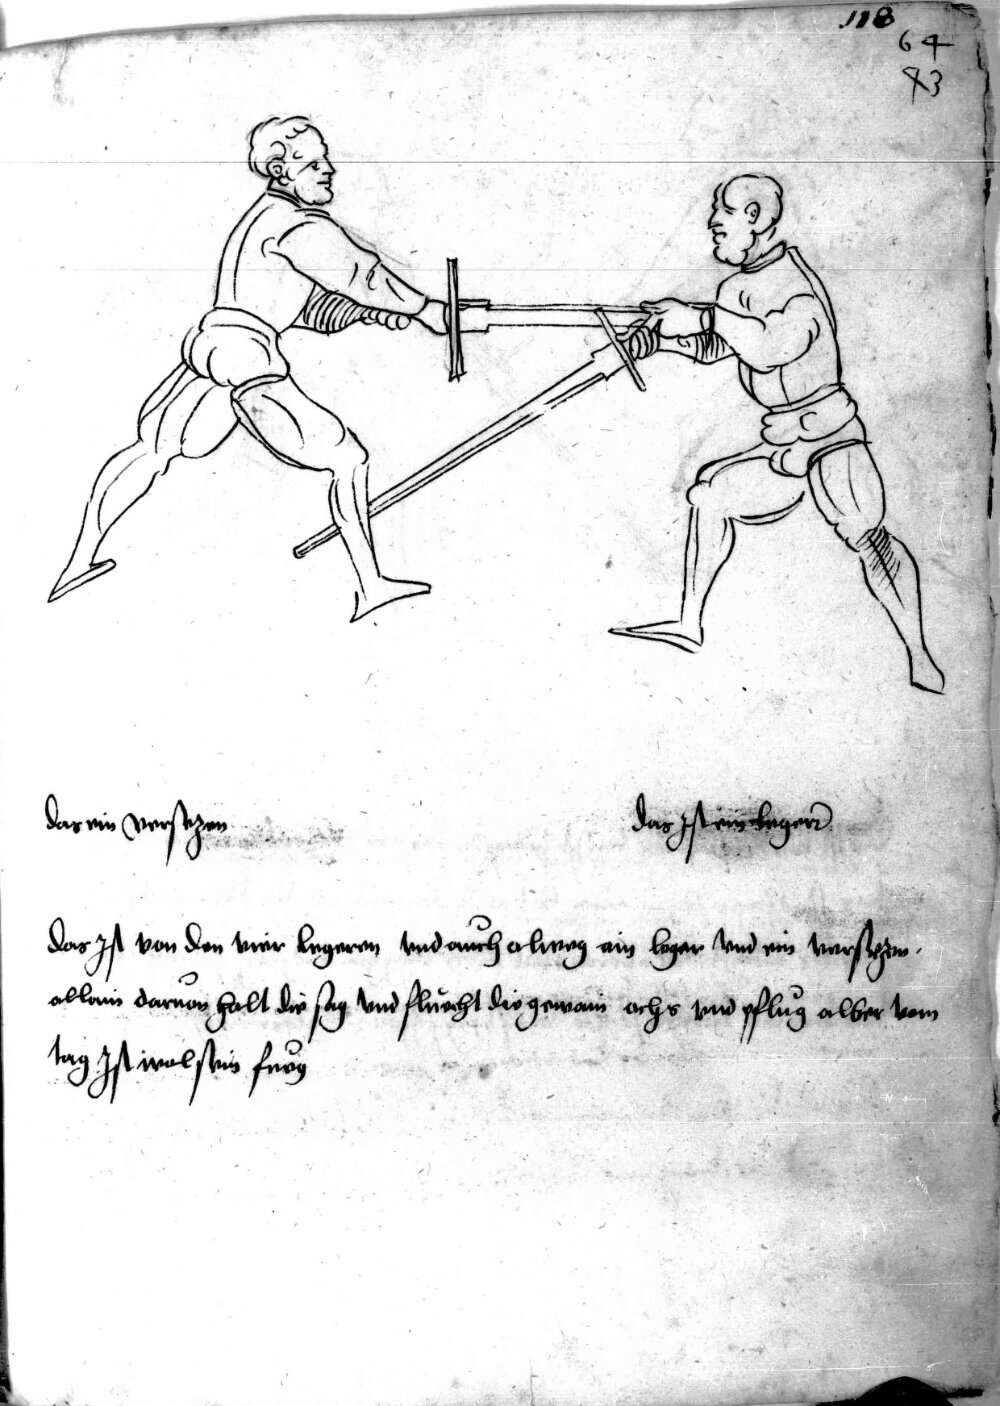 118
64
43
das ein versetzen
das Ist ein leger
das Ist von den vier legeren vnd auch alweg ain leger vnd ein versetzen.
allain daruon halt die sag vnd fluecht die gemain ochs vnd pflug alber vom
tag Ist wol sein fuog